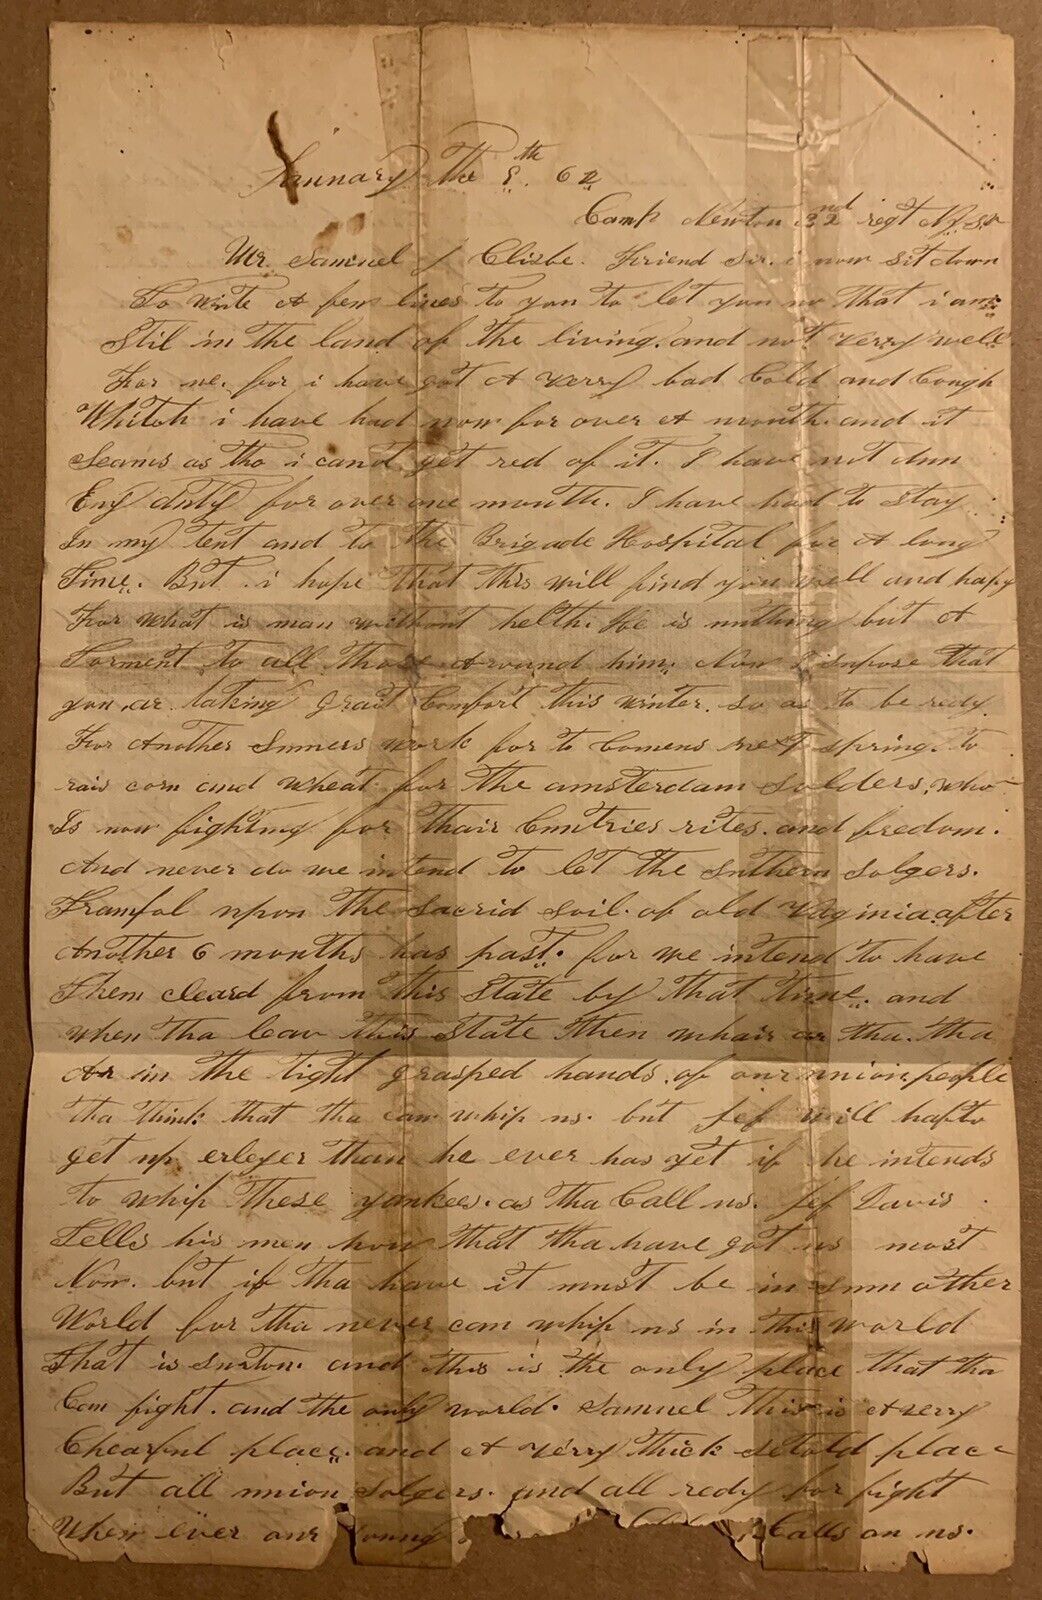 January The 8th. 62
Camp Newton 32nd regt N.y.S.V
Mr. Samuel J Clisbe. Friend Sir. i now sit down
To write A few lines to you to let you no that i am
Stil in the land of the living. and not verry well
For me. for i have got A verry bad Cold and Cough
Whitch i have had now for over A month. and it
Seams as tho i cand get red of it. I have not dun
Eny duty for over one month. I have had to stay
In my tent and to the Brigade Hospital for A long
Time. But i hope that this will find you well and hapy
For what is man without helth. He is nuthing but A
Torment to all those Around him. Now I supose that
you ar taking grait Comfort this winter. so as to be redy
For Another Sumers work for to Comens next spring. to
rais corn and wheat for the amsterdam Solders. who
Is now fighting for thair Cuntries rites. and fredom.
And never do we intend to let the Suthern Solgers.
Trampul upon the Sacrid Soil. of old Virginia after
Another 6 months has past. for we intend to have
Them cleard from this State by that time. and
when tha leav this State then whair ar tha. tha
Ar in the tight grasped hands. of our union people
tha think that tha can whip us. but Jef will hafto
get up erleyer than he ever has yet if he intends
to whip these yankees. as tha Call us. Jef Davis
Tells his men how that tha have got us most
Now. but if tha have it must be in sum other
World for tha never can whip us in this world
That is Surton. and this is the only place that tha
Can fight. and the only world. Samuel This is A verry
Chearful place. and A verry thick setold place
But all union Solgers. and all redy for fight
When ever our young Calls on us.